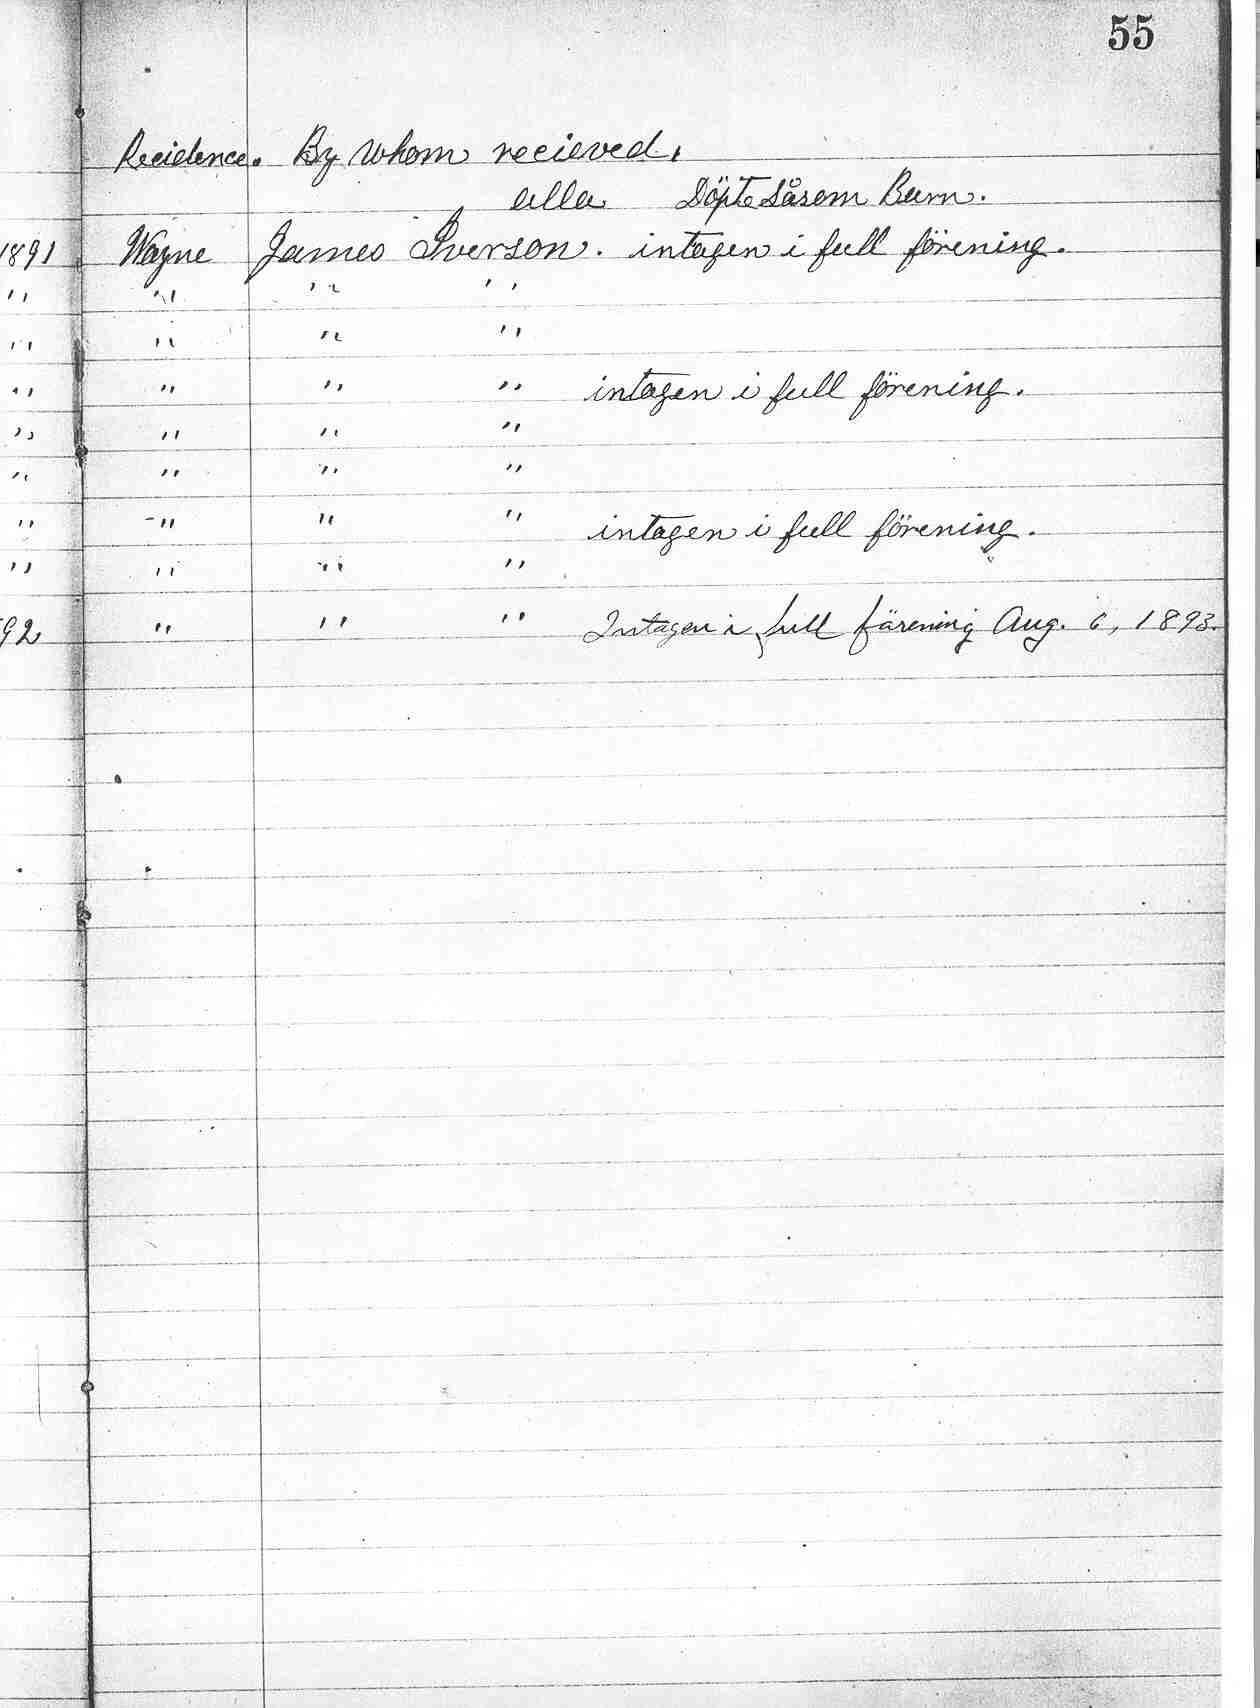 55
Recidence. By Whom recieved.
alla Döpte Såsom Barn.
1891 Wayne James Iverson. intagen i full förening.
" " " "
" " " "
" " " " intagen i full förening.
" " " "
" " " "
" " " " intagen i full förening.
" " " "
92 " " " Intagen i full förening Aug. 6, 1893.